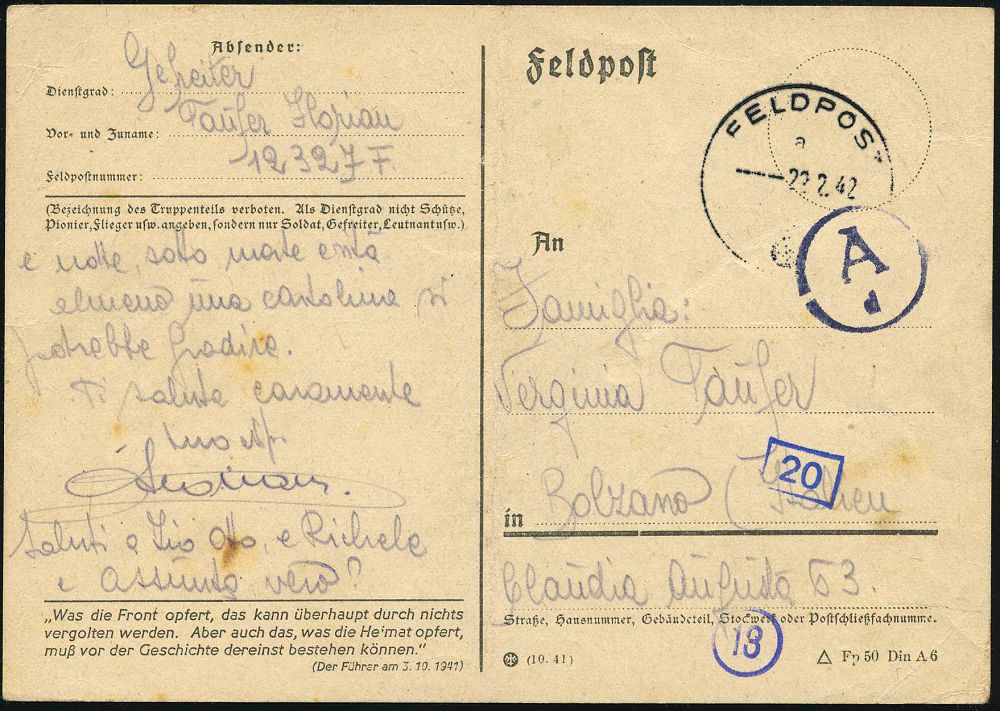 Absender:
Dienstgrad: Gefreiter
Vor- und Zuname: Taufer Florian
Feldpostnummer: 12327 F.
(Bezeichnung des Truppenteils verboten. Als Dienstgrad nicht Schütze,
Pionier, Flieger usw. angeben, sondern nur Soldat, Gefreiter, Leutnant usw.)
e notte, sotto
una cartolina
gradire.
Ti saluta caramente
tuo
Saluti a Zio Otto, e Richele
e Assunta vero?
„Was die Front opfert, das kann überhaupt durch nichts
vergolten werden. Aber auch das, was die Heimat opfert,
muß vor der Geschichte dereinst bestehen können."
(Der Führer am 3. 10. 1941)
Feldpost
FELDPOST
a
22.2.42
A
d
An
Famiglia:
Verginia Taufer
20
in Bolzano (Italien
Claudia Augusta 53.
Straße, Hausnummer, Gebäudeteil, Stockwerk oder Postschließfachnumme.
13
(10. 41)
Fp 50 Din A 6